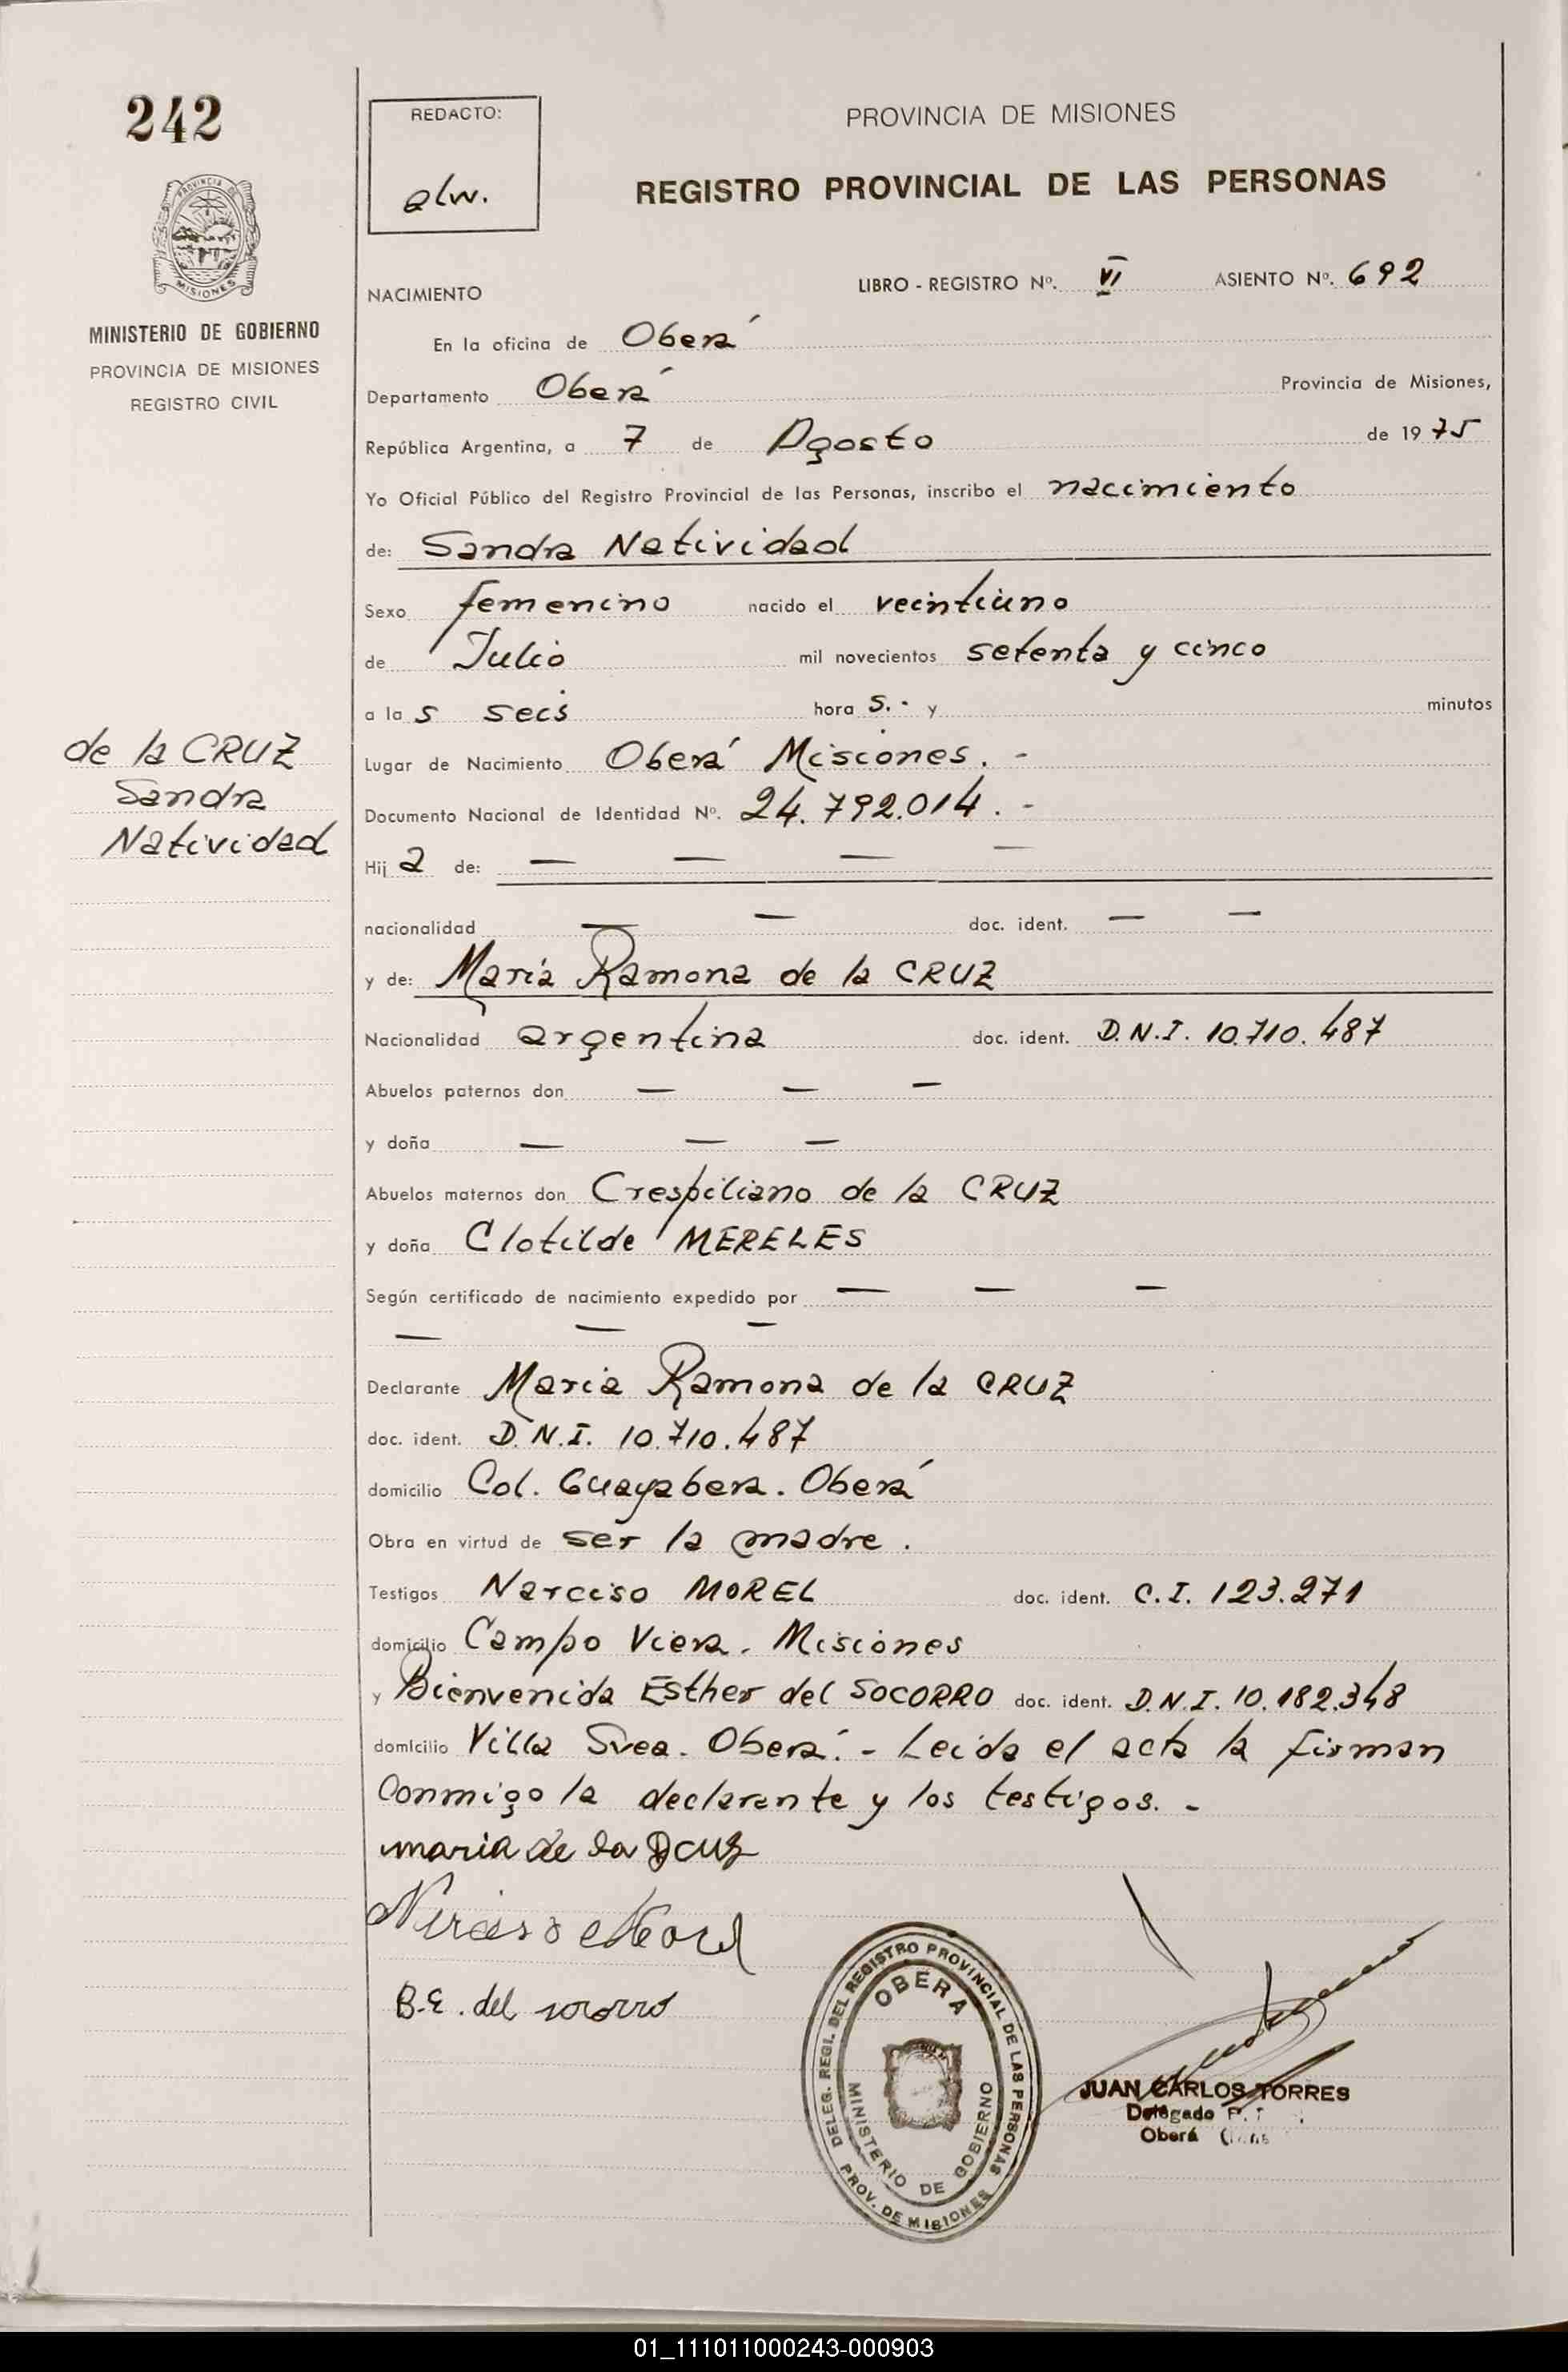 242
REDACTO:
elw.
PROVINCIA DE MISIONES
REGISTRO PROVINCIAL DE LAS PERSONAS
PROVINCIA DE
MISIONES
MINISTERIO DE GOBIERNO
PROVINCIA DE MISIONES
REGISTRO CIVIL
NACIMIENTO LIBRO - REGISTRO Nº. VI ASIENTO Nº. 692
En la oficina de Oberá
Departamento Oberá Provincia de Misiones,
República Argentina, a 7 de Agosto de 1975
Yo Oficial Público del Registro Provincial de las Personas, inscribo el nacimiento
de: Sandra Natividad
Sexo femenino nacido el veintiuno
de Julio mil novecientos setenta y cinco
a las seis hora s.- y minutos
de la CRUZ
Sandra
Natividad
Lugar de Nacimiento Oberá Misiones. -
Documento Nacional de Identidad Nº. 24.792.014. -
Hija de: — — — —
nacionalidad — — doc. ident. — —
y de: María Ramona de la CRUZ
Nacionalidad argentina doc. ident. D.N.I. 10.710.487
Abuelos paternos don — — —
y doña — — —
Abuelos maternos don Crespiliano de la CRUZ
y doña Clotilde MERELES
Según certificado de nacimiento expedido por — — —
— — —
Declarante Maria Ramona de la CRUZ
doc. ident. D.N.I. 10.710.487
domicilio Col. Guayabera. Oberá
Obra en virtud de ser la madre.
Testigos Narciso MOREL doc. ident. C.I. 123.271
domicilio Campo Viera. Misiones
y Bienvenida Esther del SOCORRO doc. ident. D.N.I. 10.182.348
domicilio Villa Svea. Oberá. - Leida el acta la firman
conmigo la declarante y los testigos. -
maria de la Cruz
Narciso Morel
B.E. del socorro
DELEG. REGI. DEL REGISTRO PROVINCIAL DE LAS PERSONAS
OBERA
MINISTERIO DE GOBIERNO
PROV. DE MISIONES
JUAN CARLOS TORRES
Delegado
Oberá
01_111011000243-000903